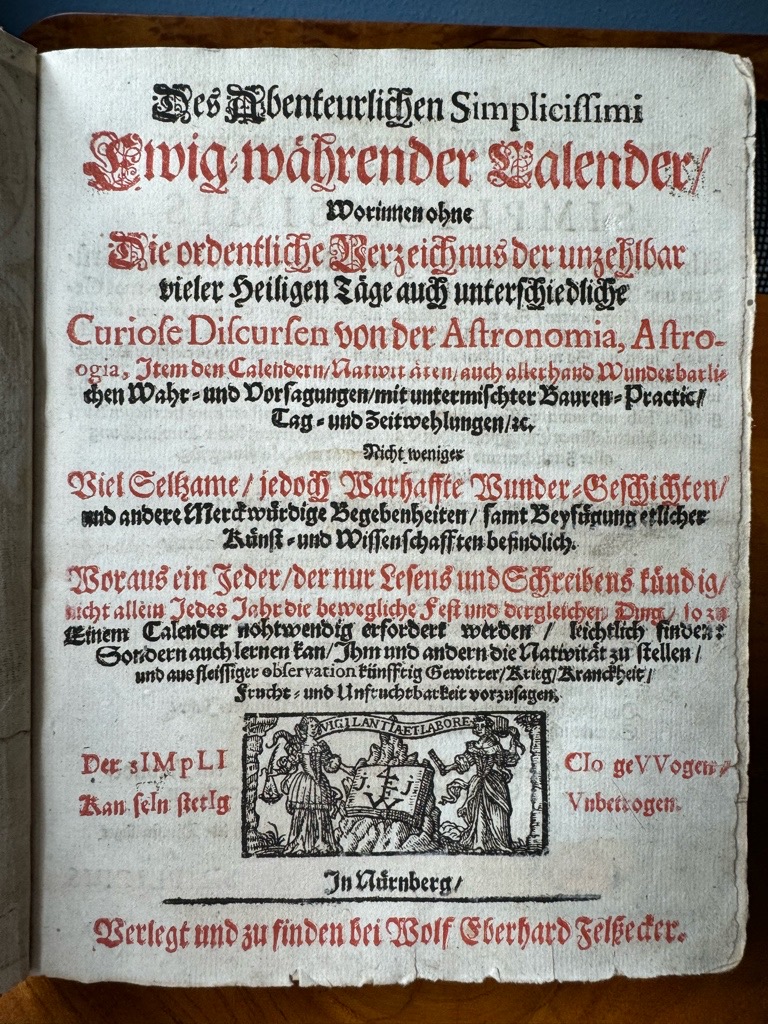 Des Abenteurlichen Simplicissimi
Ewig-währender Calender/
Worinnen ohne
Die ordentliche Verzeichnus der unzehlbar
vieler Heiligen Täge auch unterschiedliche
Curiose Discursen von der Astronomia, Astro-
ogia, Item den Calendern/Nativitäten/auch allerhand Wunderbarli-
chen Wahr- und Vorsagungen/mit untermischter Bauren-Practic/
Tag- und Zeitwehlungen/ꝛc.
Nicht weniger
Viel Seltzame/ jedoch Warhaffte Wunder-Geschichten/
und andere Merckwürdige Begebenheiten/ samt Beyfügung etlicher
Künst- und Wissenschafften befindlich.
Woraus ein Jeder/der nur Lesens und Schreibens kündig/
nicht allein Jedes Jahr die bewegliche Fest und dergleichen Ding/ so zu
Einem Calender nohtwendig erfordert werden/ leichtlich finden:
Sondern auch lernen kan/Ihm und andern die Nativität zu stellen/
und aus fleissiger observation künfftig Gewitter/Krieg/Kranckheit/
Frucht- und Unfruchtbarkeit vorzusagen.
VIGILANTIA ET LABORE
Der sIMpLI CIo geVVogen/
J. W J.
Kan seIn stetIg Vnbetrogen.
In Nürnberg/
Verlegt und zu finden bei Wolf Eberhard Felßecker.